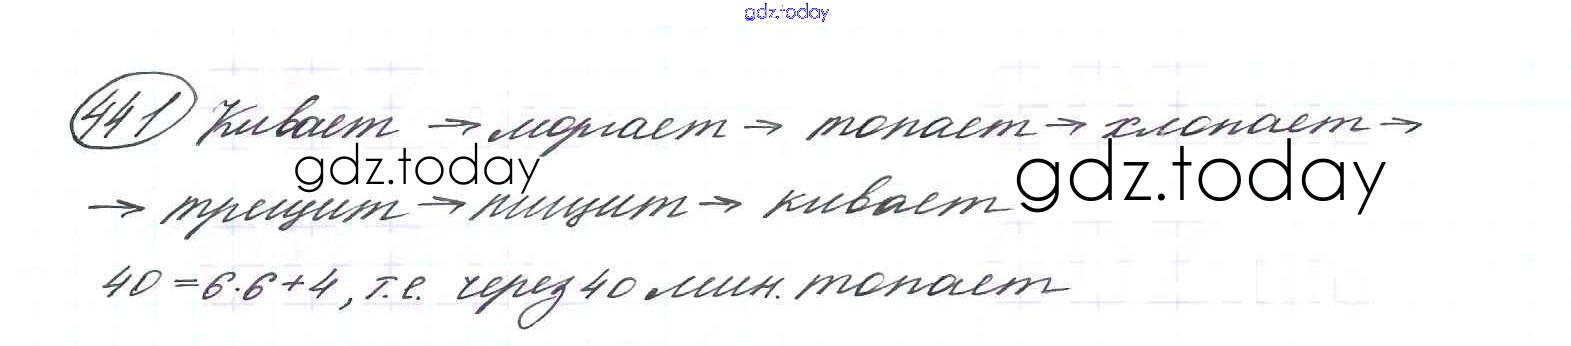 gdz.today
441 Кивает → моргает → топает → хлопает →
gdz.today gdz.today
→ трещит → пищит → кивает
40 = 6·6+4, т.е. через 40 мин. топает